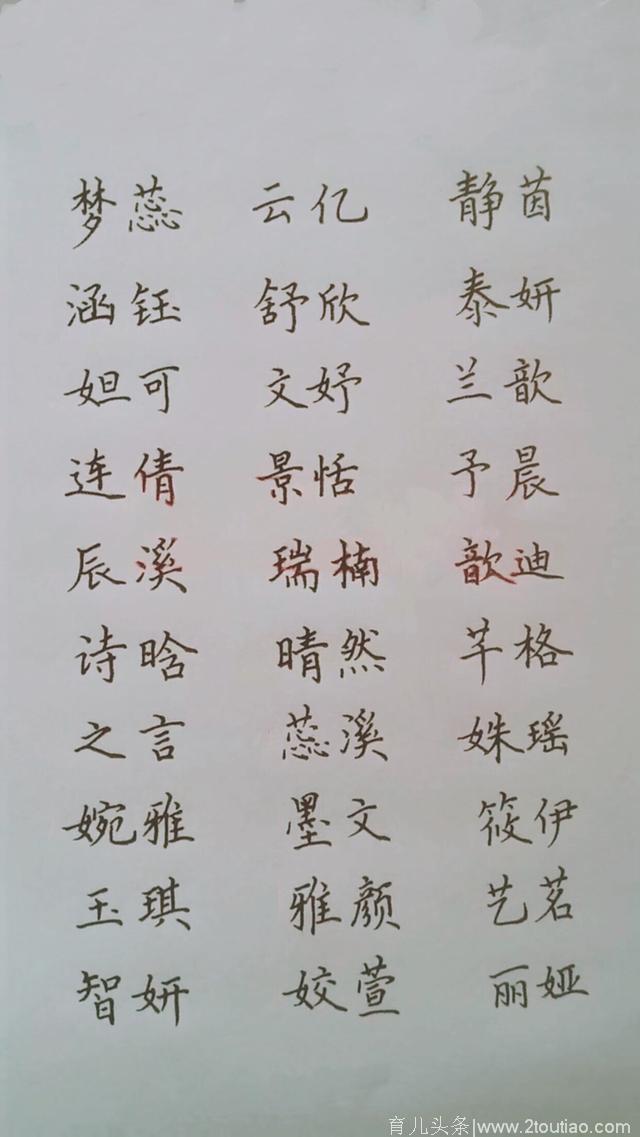 梦蕊 云亿 静茵
涵钰 舒欣 泰妍
妲可 文妤 兰歆
连倩 景恬 予晨
辰溪 瑞楠 歆迪
诗晗 晴然 芊格
之言 蕊溪 姝瑶
婉雅 墨文 筱伊
玉琪 雅颜 艺茗
智妍 姣萱 丽娅
育儿头条|www.2toutiao.com